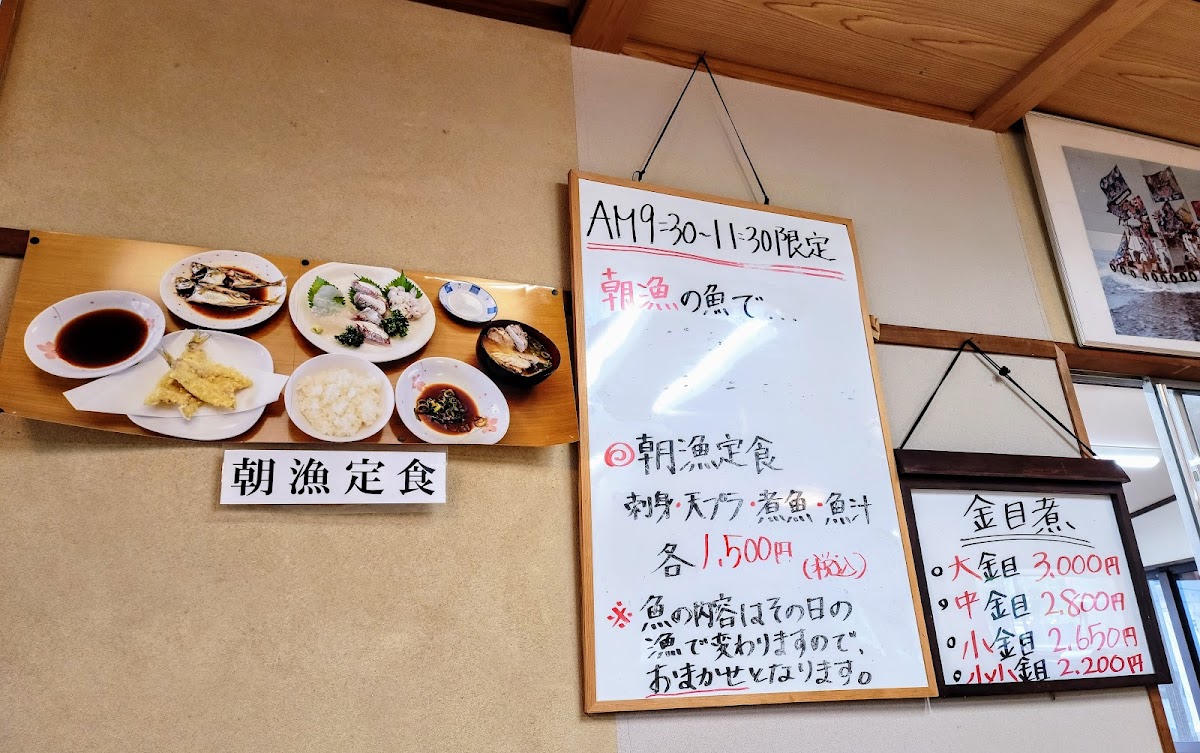 朝漁定食
AM9:30~11:30限定
朝漁の魚で...
◎朝漁定食
刺身・天プラ・煮魚・魚汁
各1,500円(税込)
※魚の内容はその日の
漁で変わりますので、
おまかせとなります。
金目煮
大金目 3,000円
中金目 2,800円
小金目 2,650円
小小金目 2,200円